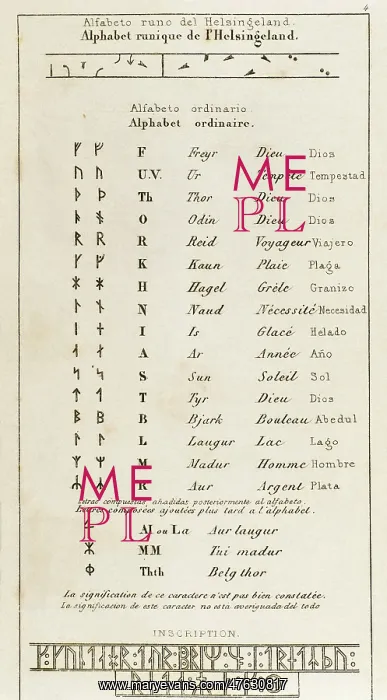 4
Alfabeto runo del Helsingeland.
Alphabet runique de l'Helsingeland.
Alfabeto ordinario.
Alphabet ordinaire.
ᚠ ᚠ F Freyr Dieu Dios
ᚢ ᚢ U.V. Ur Tempête Tempestad
ᚦ ᚦ Th Thor Dieu Dios
O Odin Dieu Dios
ᚱ ᚱ R Reid Voyageur Viajero
ᚴ ᚴ K Kaun Plaie Plaga
ᚼ ᚼ H Hagel Grêle Granizo
ᚾ ᚾ N Naud Nécessité Necesidad
ᛁ I Is Glacé Helado
ᛆ ᛆ A Ar Année Año
ᛋ ᛋ S Sun Soleil Sol
ᛏ ᛐ T Tyr Dieu Dios
ᛒ ᛒ B Bjark Bouleau Abedul
ᛚ ᛚ L Laugur Lac Lago
ᛘ ᛘ M Madur Homme Hombre
Aur Argent Plata
Letras compuestas, añadidas posteriormente al alfabeto.
Lettres composées ajoutées plus tard a l'alphabet.
Al ou La Aur laugur
MM Tui madur
Thth Belg thor
La signification de ce caractere n'est pas bien constatée.
La significacion de este caracter no esta averiguada del todo
INSCRIPTION.
ME
PL
ME
PL
www.maryevans.com/47630817